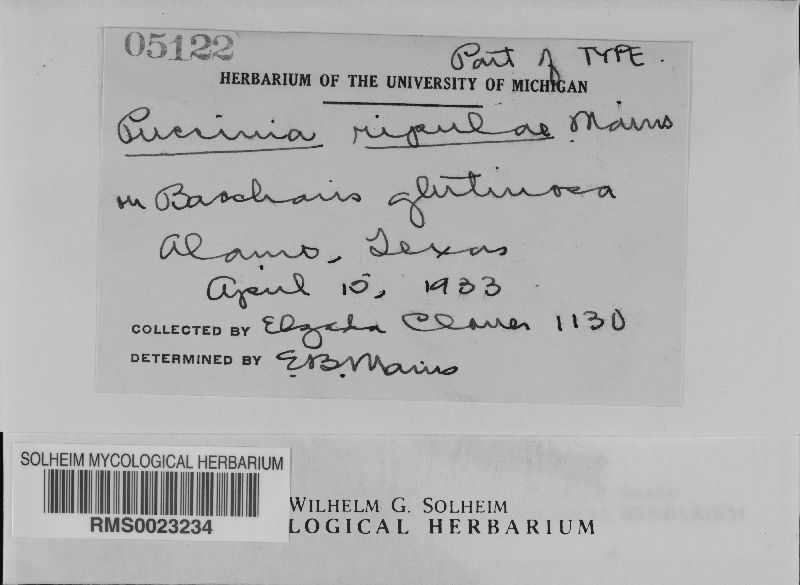 05122
Part of TYPE.
HERBARIUM OF THE UNIVERSITY OF MICHIGAN
Puccinia ripulae Mains
on Baccharis glutinosa
Alamo, Texas
April 15, 1933
COLLECTED BY Elzada Clover 1130
DETERMINED BY E.B. Mains
SOLHEIM MYCOLOGICAL HERBARIUM
RMS0023234
WILHELM G. SOLHEIM
LOGICAL HERBARIUM